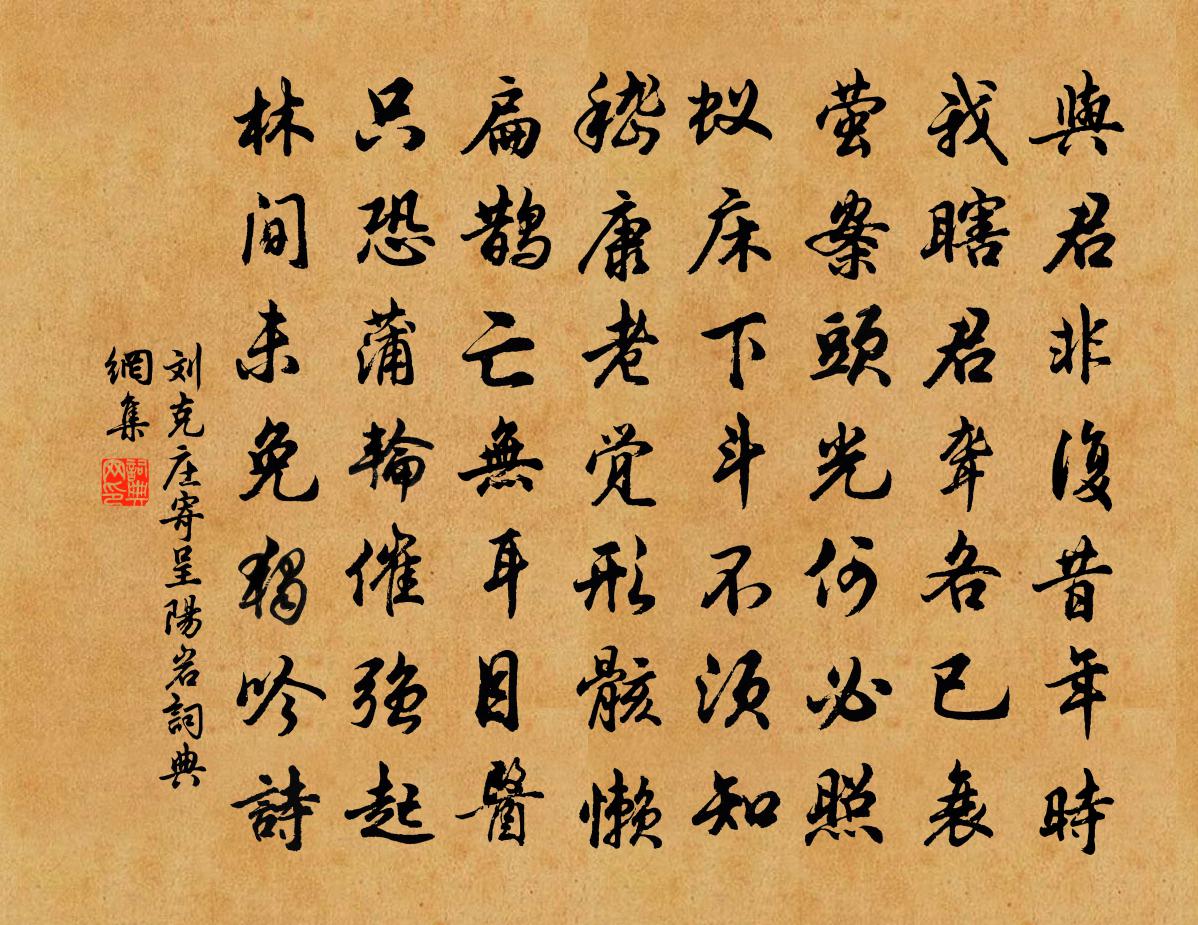 與君非復昔年時
我瞎君聋各已衰
萤案頭光何必照
蚁床下斗不須知
嵇康老觉形骸懒
扁鹊亡無耳目醫
只恐蒲輪催强起
林間未免獨吟詩
刘克庄寄呈陽岩詞典
網集
詞典
网印